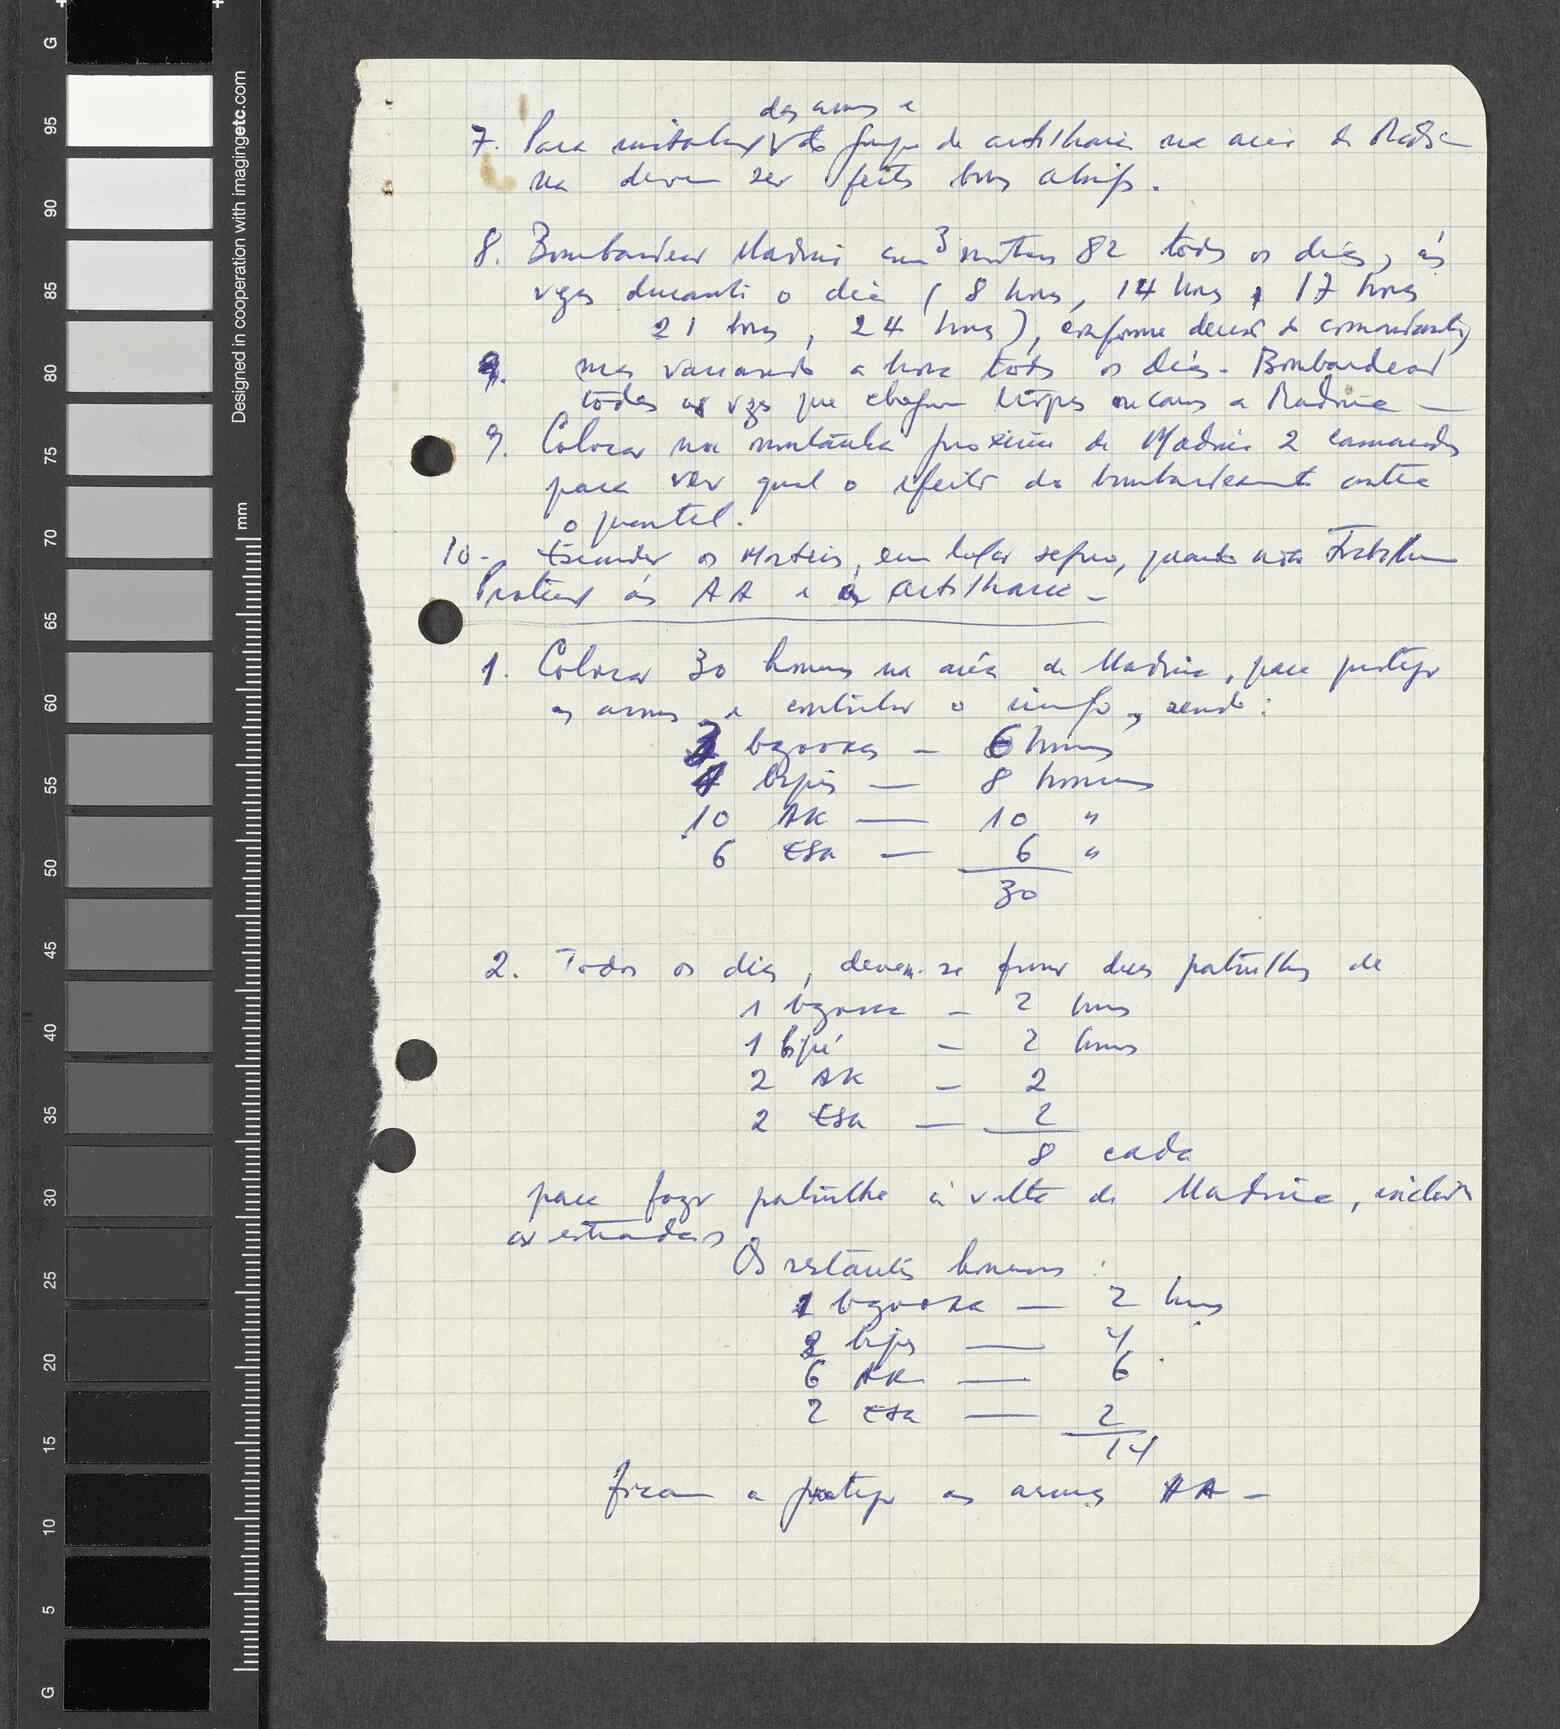 das armas e
7. Para instalação do grupo de artilharia na área de Madi-
na devem ser feitos bons abrigos.
8. Bombardear Madina com 3 morteiros 82 todos os dias, às
vezes durante o dia (8 horas, 14 horas, 17 horas
21 horas, 24 horas), conforme decisão do comandante,
mas variando a hora todos os dias. Bombardear
todas as vezes que chegam tropas ou carros a Madina —
9. Colocar na montanha próxima de Madina 2 camaradas
para ver qual o efeito do bombardeamento contra
o quartel.
10 - Esconder os Morteiros, em lugar seguro, quando não trabalham
Proteção às AA e à artilharia —
1. Colocar 30 homens na área de Madina, para proteger
as armas e controlar o inimigo, sendo:
3 bazookas — 6 homens
4 bipés — 8 homens
10 AK — 10 "
6 ESA — 6 "
30
2. Todos os dias, devem-se formar duas patrulhas de
1 bazooka — 2 homens
1 bipé — 2 homens
2 AK — 2
2 ESA — 2
8 cada
para fazer patrulha à volta de Madina, incluindo
as estradas
Os restantes homens:
1 bazooka — 2 homens
2 bipés — 4
6 AK — 6
2 ESA — 2
14
ficam a proteger as armas AA —
G
95
90
85
80
75
70
65
60
55
50
45
40
35
30
25
20
15
10
5
G
mm
Designed in cooperation with imagingetc.com